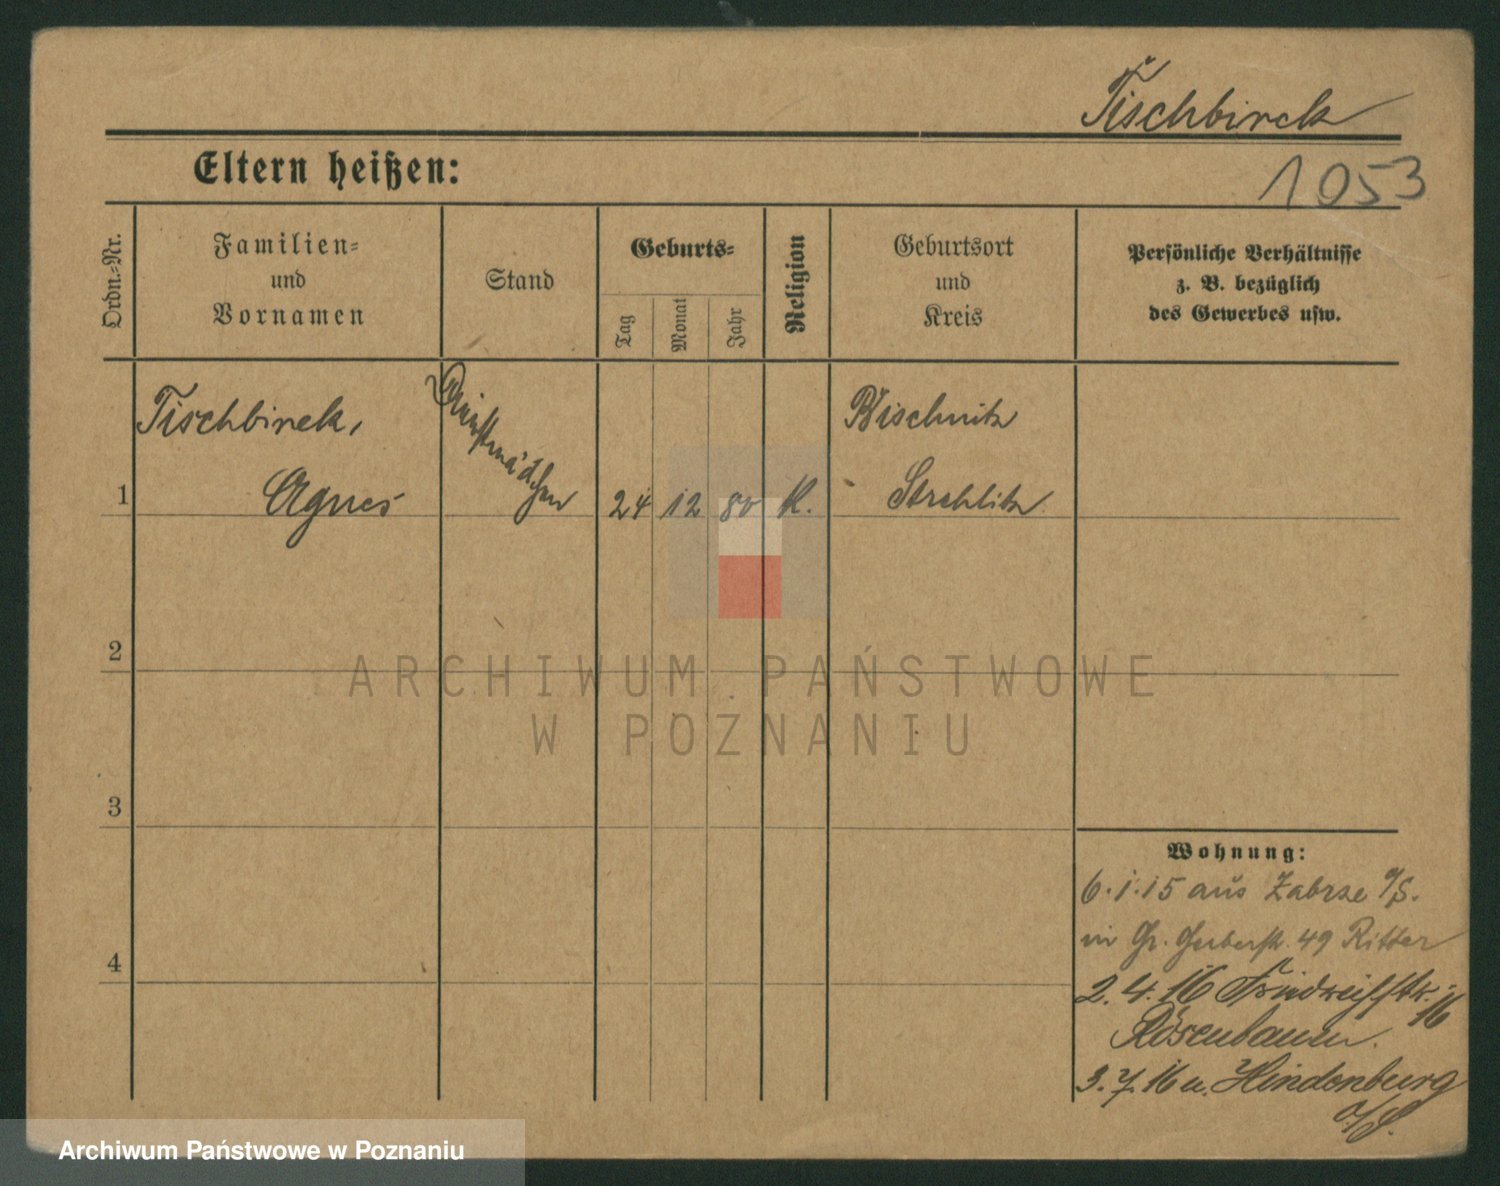 Tischbirek
1053
Eltern heißen:
Ordn.-Nr.
Familien-
und
Vornamen
Stand
Geburts-
Tag
Monat
Jahr
Religion
Geburtsort
und
Kreis
Persönliche Verhältnisse
z. B. bezüglich
des Gewerbes usw.
Tischbirek,
Dienstmädchen
Bischnitz
1 Agnes 24 12 80 K. Strehlitz
2
3
4
Wohnung:
6.1.15 aus Zabrze O/S.
in Gr. Gerberstr. 49 Ritter
2.4.16 Friedrichstr. 16
Rosenbaum.
3.7.16 n. Hindenburg
O/S.
ARCHIWUM PAŃSTWOWE
W POZNANIU
Archiwum Państwowe w Poznaniu